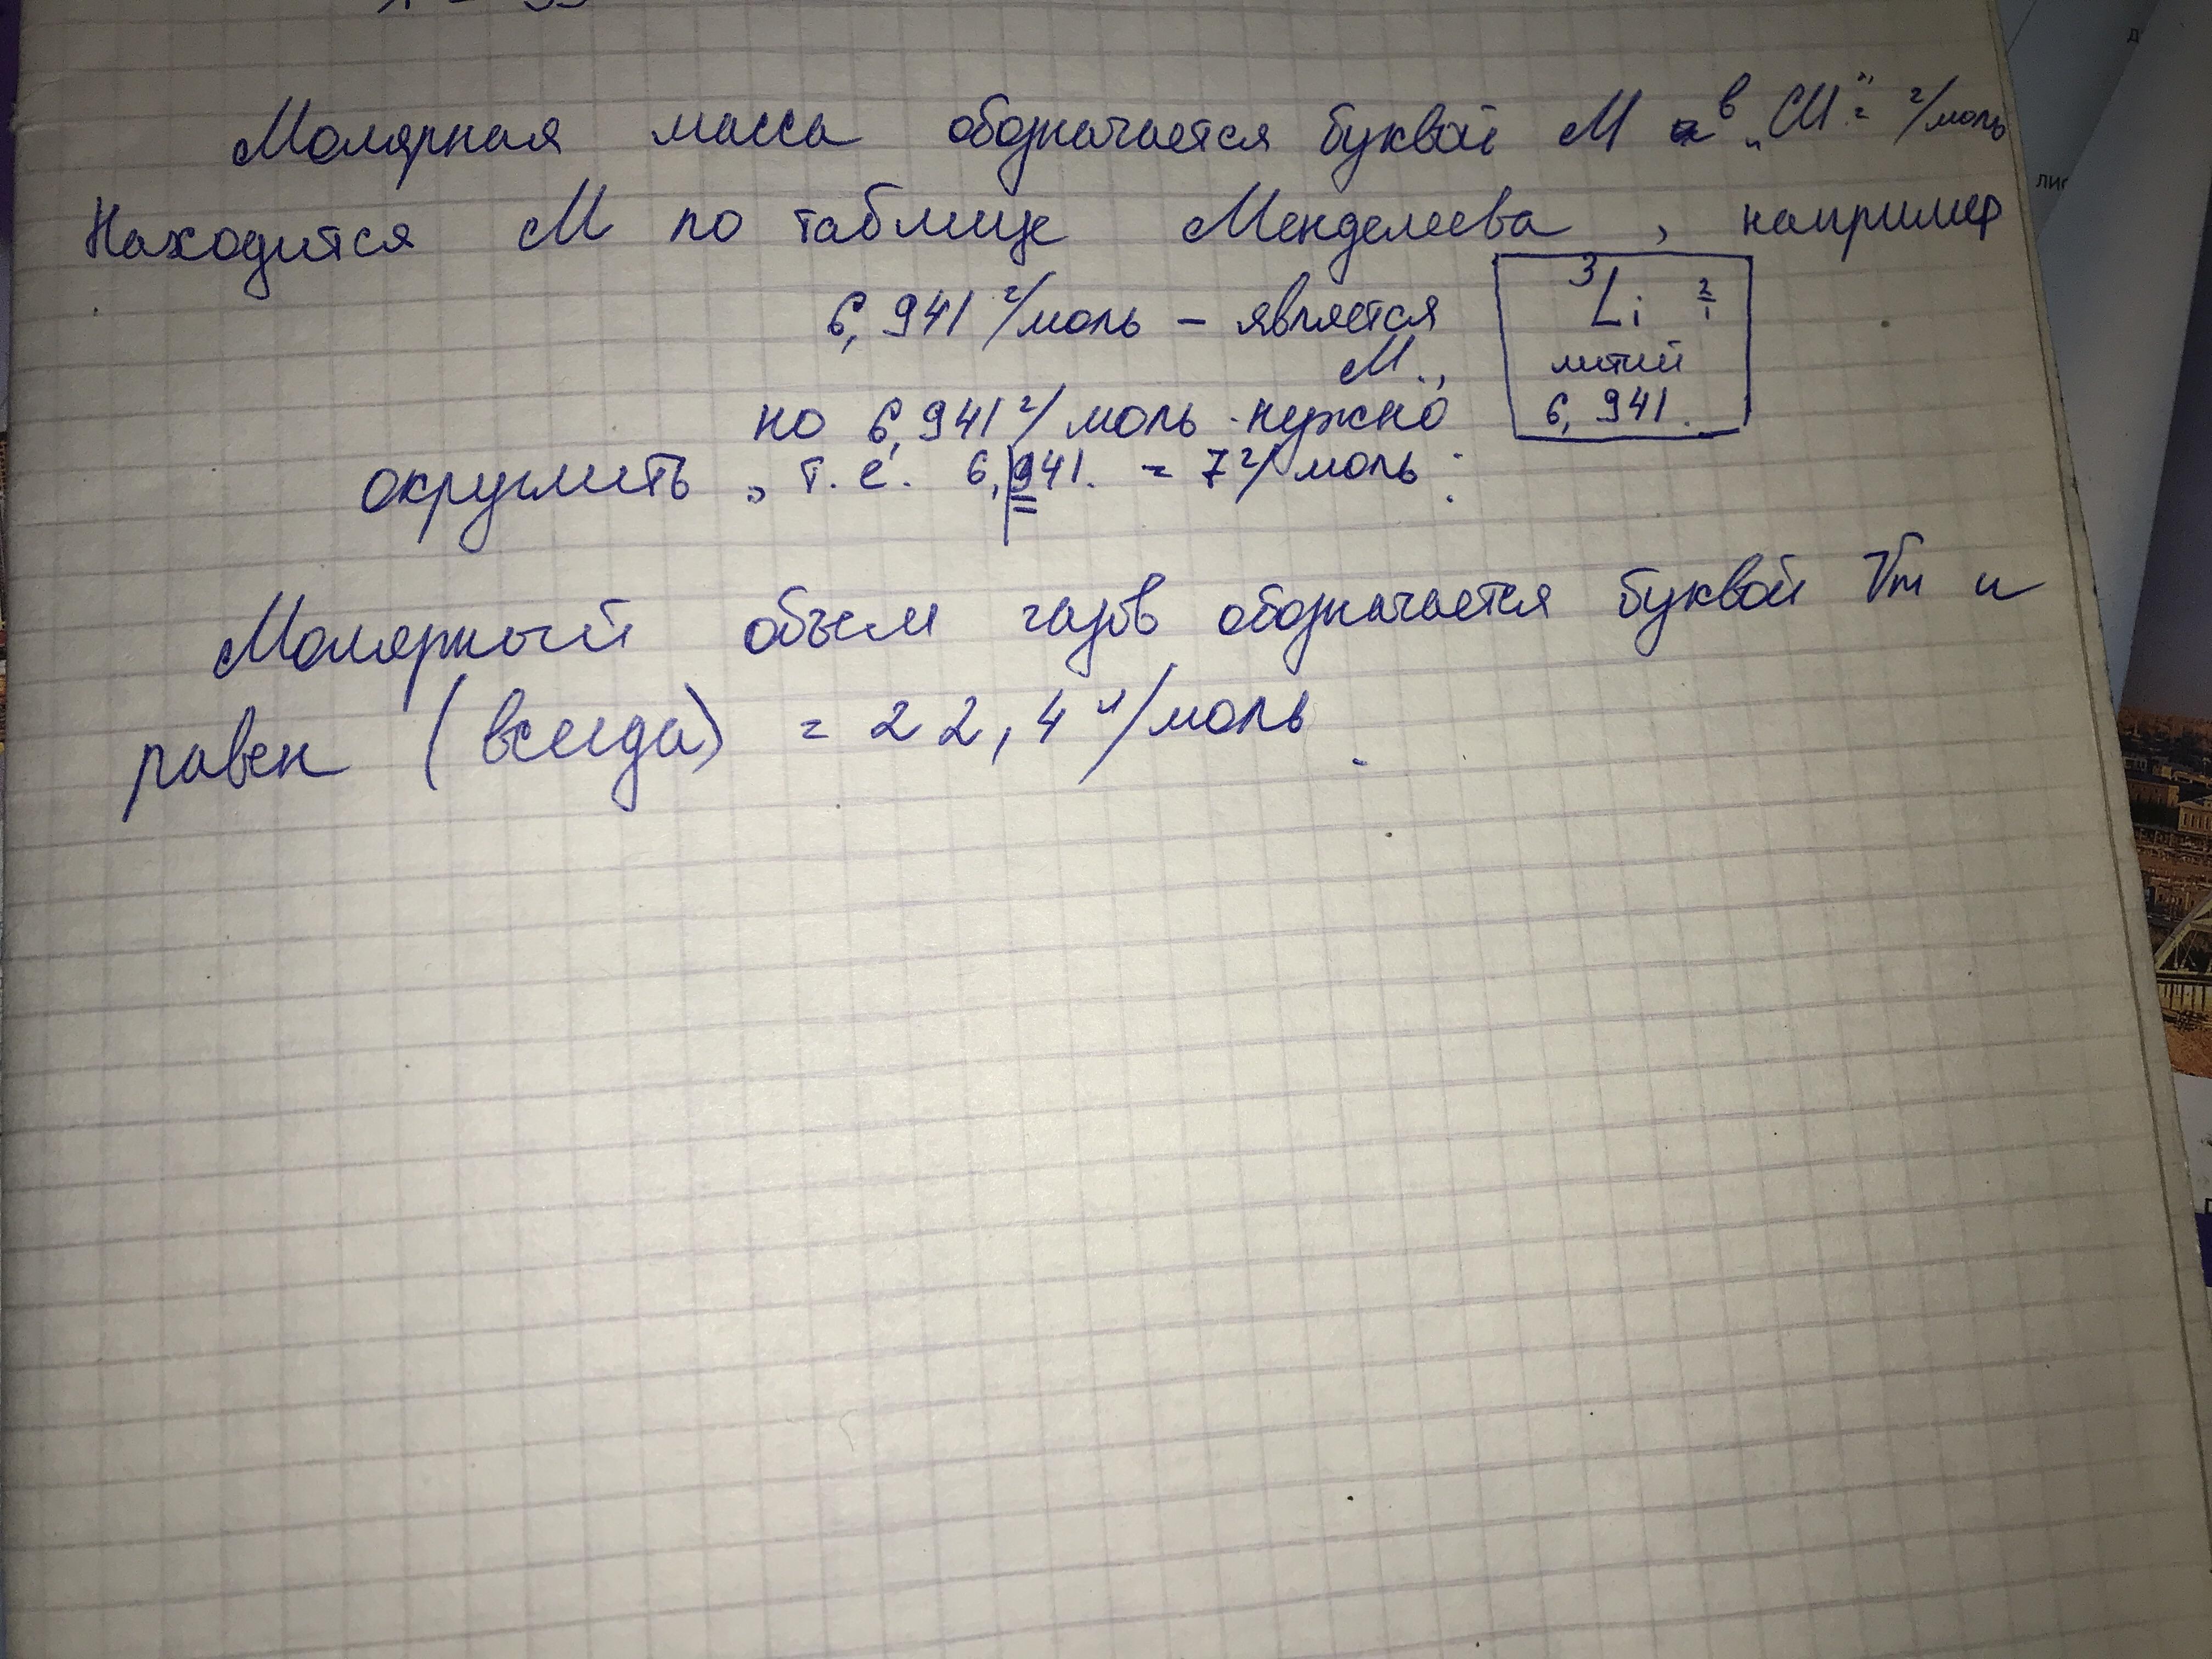 Молярная масса обозначается буквой М в „СИ" = г/моль
Находится М по таблице Менделеева, например
6,941 г/моль – является
М.,
3 Li 2 1
литий
6,941.
но 6,941 г/моль нужно
округлить, т.е. 6,941. = 7 г/моль.
Молярный объем газов обозначается буквой Vm и
равен (всегда) = 22,4 л/моль.